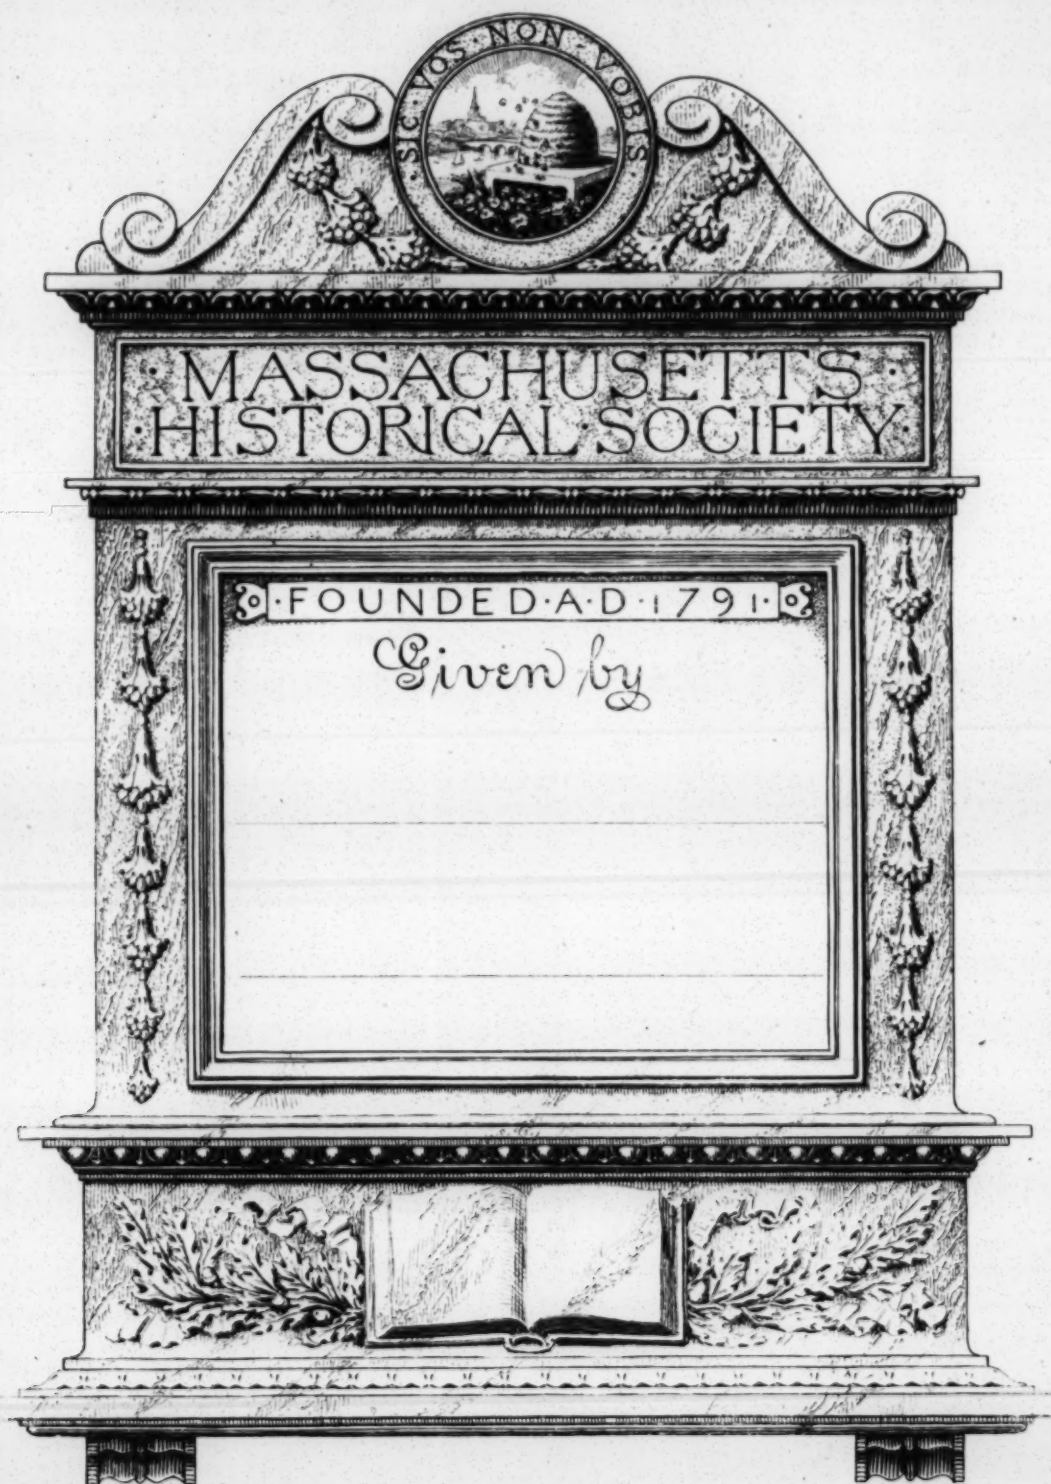 SIC · VOS · NON · VOBIS
· MASSACHUSETTS ·
· HISTORICAL · SOCIETY ·
· FOUNDED · A · D · 1791 ·
Given by